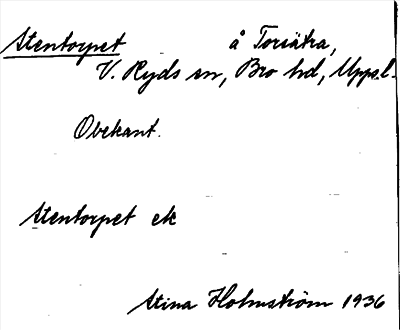 Stentorpet å Torsätra,
V. Ryds sn, Bro hd, Upps.l.
Obekant.
Stentorpet ek
Stina Holmström 1936